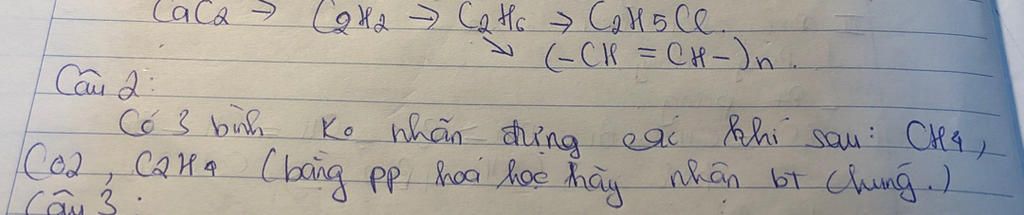 CaC2 → C2H2 → C2H6 → C2H5Cl.
↘ (-CH = CH-)n.
Câu 2:
Có 3 bình ko nhãn đựng các khí sau: CH4,
CO2, C2H4 (bằng pp hoá học hãy nhận bt chúng.)
Câu 3: